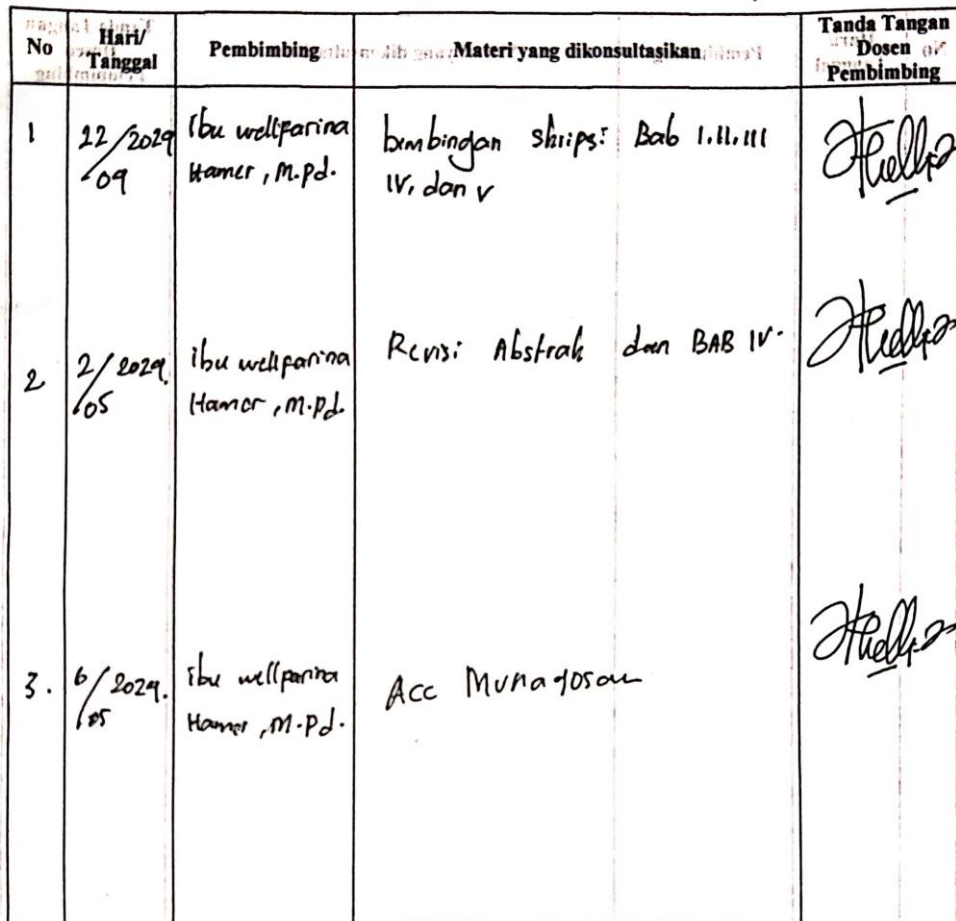 No
Hari/
Tanggal
Pembimbing
Materi yang dikonsultasikan
Tanda Tangan
Dosen
Pembimbing
1
22/2029
09
Ibu wellfarina
Hamer, M.Pd.
bimbingan skripsi Bab I.II.III
IV, dan V
2
2/2029.
05
ibu wellfarina
Hamer, M.Pd.
Revisi Abstrak dan BAB IV.
3.
6/2029.
05
ibu wellfarina
Hamer, M.Pd.
Acc Munaqosau